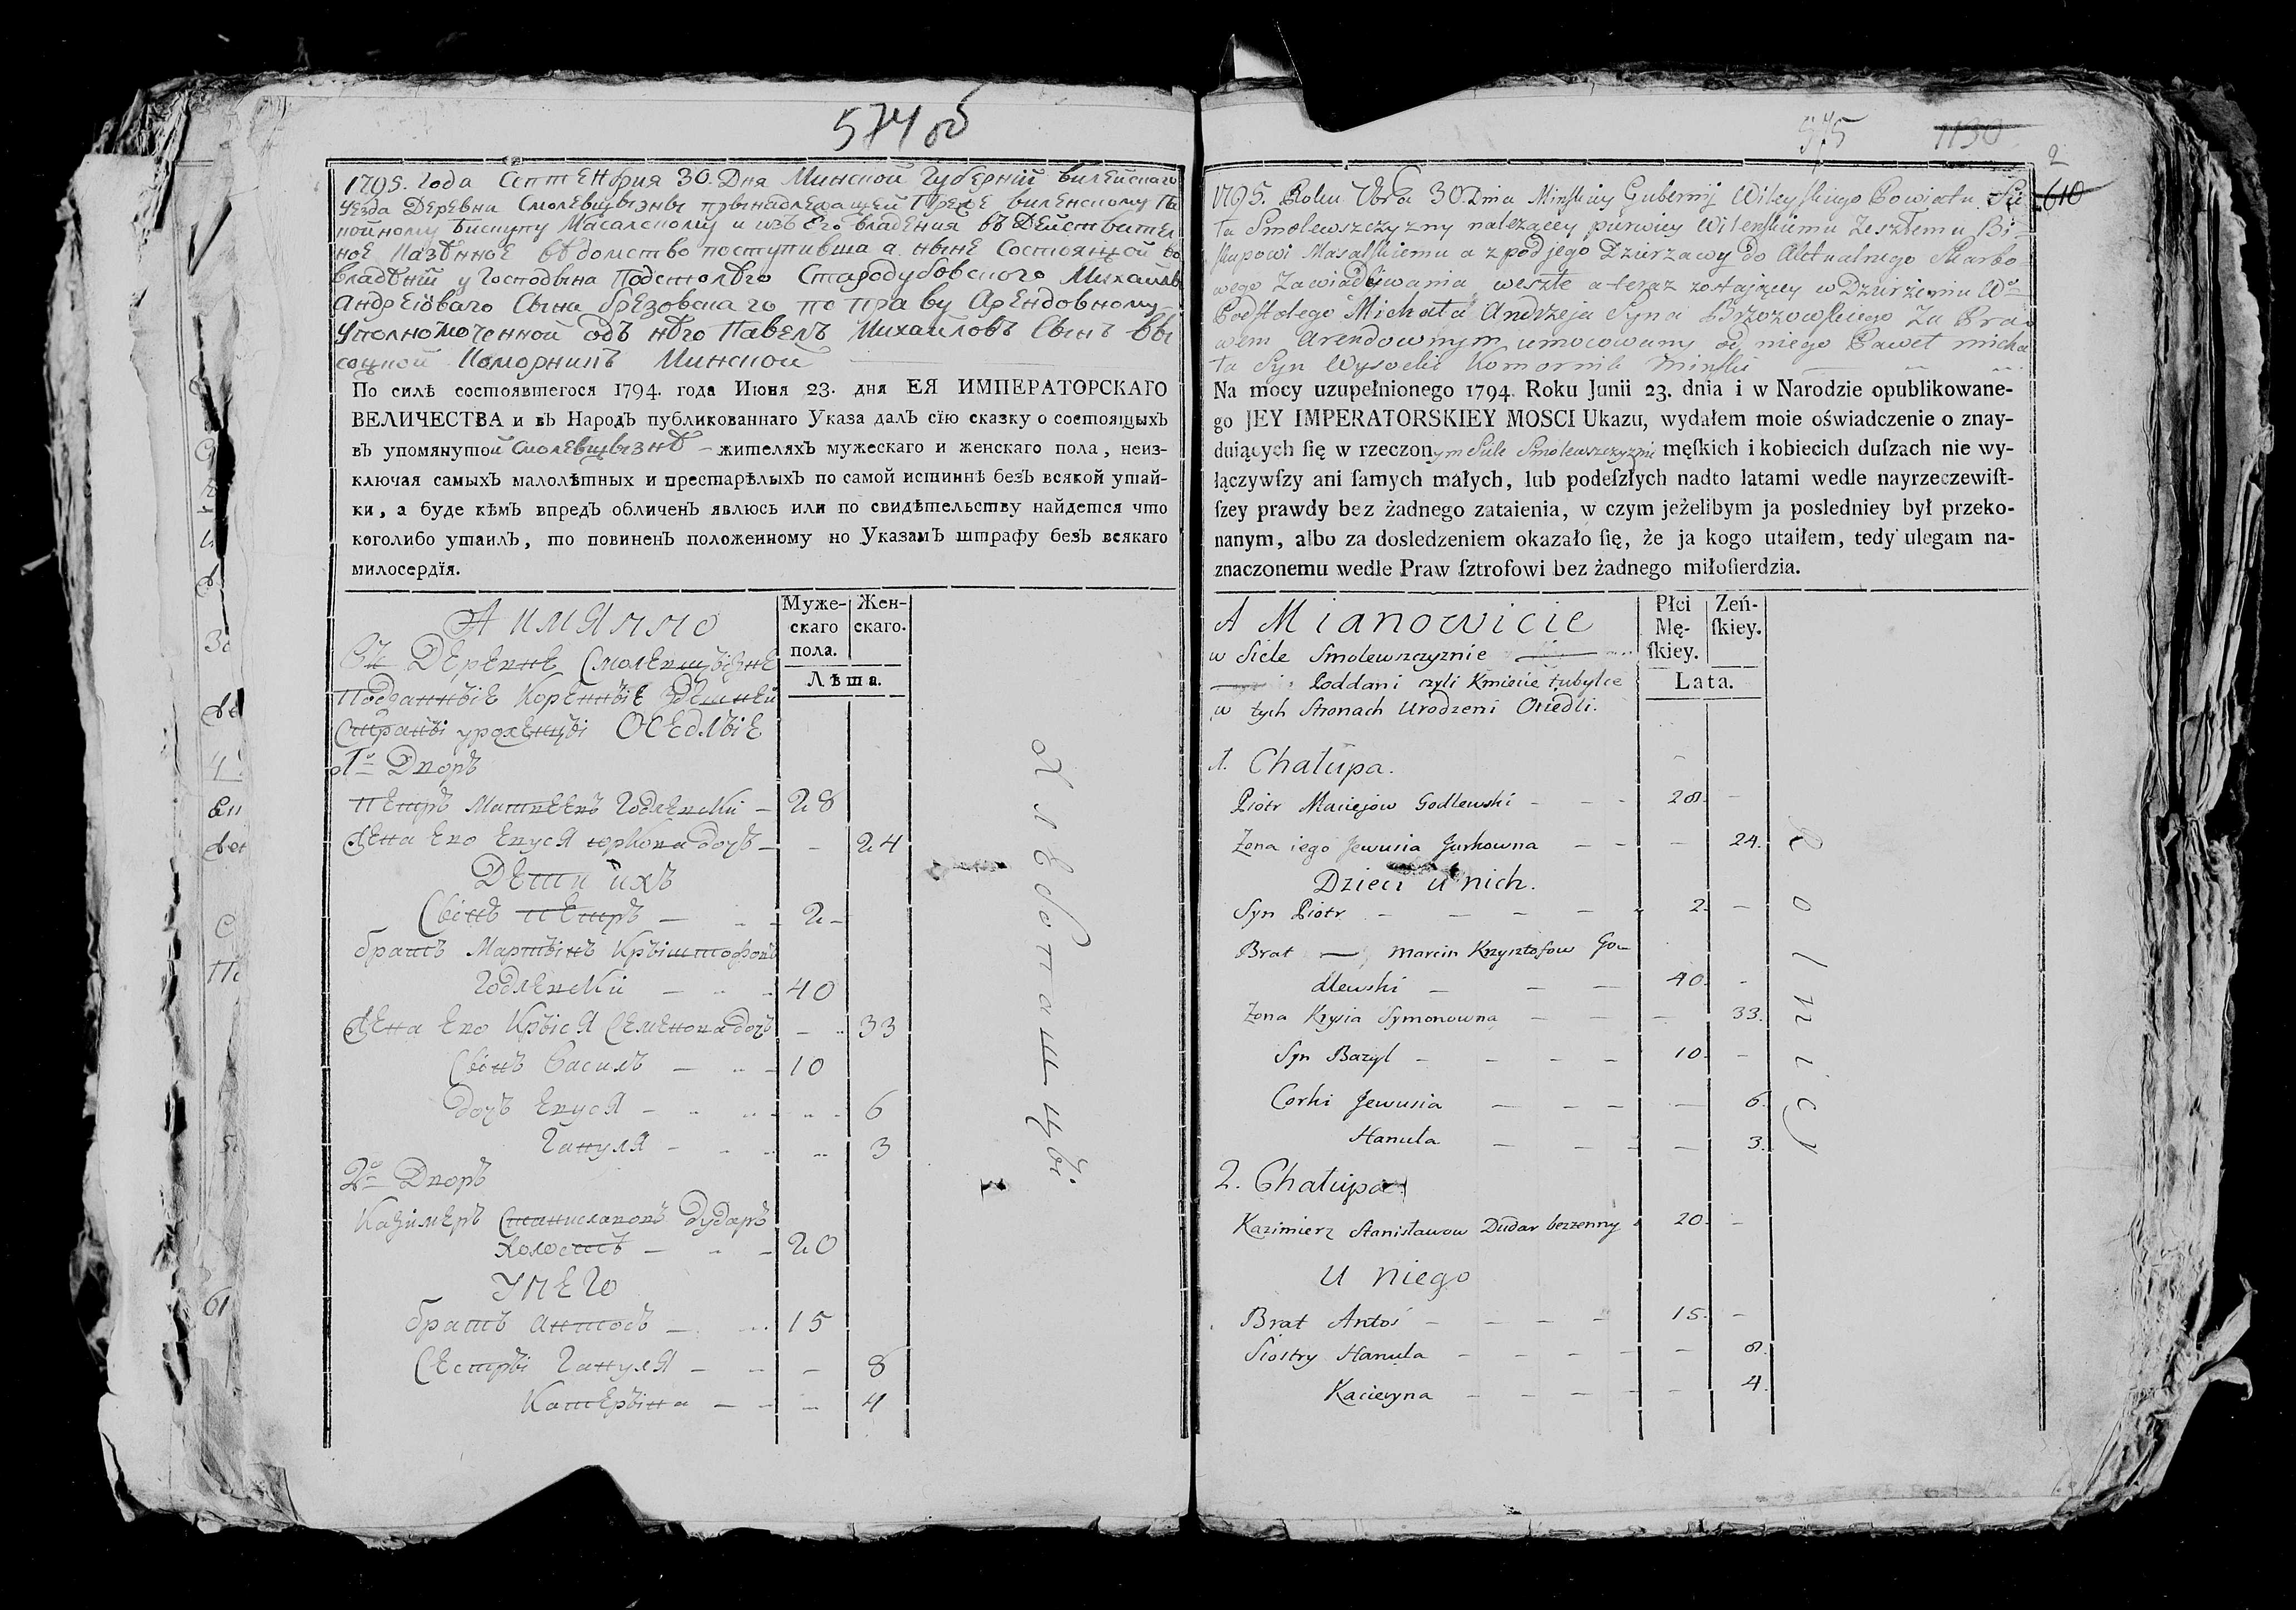 574 об
1795. года Септенбрия 30. Дня Минской Губернїй вилейскаго
уезда Деревна Смолевщызны прынадлежащей Прежде виленскому По
койному бискупу Масалскому и изъ Его владения въ Действител
ное Казенное ведомство поступивша а ныне Состоящой во
владенїй у Господына Подстолего Стародубовского Михаила
Андреїоваго Сына брезовскаго по праву Арендовному
уполномоченной одъ него Павелъ Михаиловъ Сынъ Вы
соцкой Коморникъ Минской
По силѣ состоявшегося 1794. года Июня 23. дня ЕЯ ИМПЕРАТОРСКАГО
ВЕЛИЧЕСТВА и въ Народъ публикованнаго Указа далъ сїю сказку о состоящыхъ
въ упомянутой Смолевщызнѣ – жителяхъ мужескаго и женскаго пола, неиз-
ключая самыхъ малолѣтныхъ и престарѣлыхъ по самой истиннѣ безъ всякой утай-
ки, а буде кѣмъ впредъ обличенъ явлюсь или по свидѣтельству найдется что
коголибо утаилъ, то повиненъ положенному но Указамъ штрафу безъ всякаго
милосердїя.
Муже-
скаго
пола.
Жен-
скаго.
Лѣта.
А имянно
Въ Деревне Смолевщызне
Подданные Коренные здешней
Страны уроженцы Оседлые
1о Дворъ
Петръ Матвеевъ Годлевскй – 28
Жена Ево Евуся юркова дочъ – – 24
Дети ихъ
Сынъ Петръ – 2 –
братъ Мартынъ Крыштофовъ
Годлевскй – 40
Жена Ево Крыся Семенова дочъ – 33
Сынъ Василъ – 10
дочъ Евуся – 6
Гануля – 3
2о Дворъ
Казимеръ Станиславовъ Дударъ
Холостъ – 20
У нЕго
братъ Антосъ – 15
Сестры Гануля – – 8
Катерына – – 4
Хлебопашцы
575
1130
2
610
1795. Roku 7bra 30. Dnia Minskiey Gubernij Wileyskiego Powiatu Sio
ła Smolewszczyzny należącey pierwiey Wilenskiemu Zeszłemu Bi-
skupowi Masalskiemu a z pod jego Dzierzawy do Aktualnego Skarbo-
wego Zawiadywania weszłe a teraz zostającey w Dzierżeniu Wo
Podstolego Michała Andrzeja Syna Brzozowskiego Za Pra-
wem Arendownym umocowany od niego Paweł Micha
ła Syn Wysocki Komornik Minski
Na mocy uzupełnionego 1794. Roku Junii 23. dnia i w Narodzie opublikowane-
go JEY IMPERATORSKIEY MOSCI Ukazu, wydałem moie oświadczenie o znay-
duiących ſię w rzeczonym Siele Smolewszczyznie męſkich i kobiecich duſzach nie wy-
łączywſzy ani ſamych małych, lub podeſzłych nadto latami wedle nayrzeczewiſt-
ſzey prawdy bez żadnego zataienia, w czym jeżelibym ja posledniey był przeko-
nanym, albo za dosledzeniem okazało ſię, że ja kogo utaiłem, tedy ulegam na-
znaczonemu wedle Praw ſztrofowi bez żadnego miłoſierdzia.
Płci
Mę-
ſkiey.
Zeń-
ſkiey.
Lata.
A Mianowicie
w Siele Smolewszczyznie
Poddani czyli Kmiecie tubylce
w tych Stronach Urodzeni Osiedli.
1. Chałupa.
Piotr Maciejow Godlewski – – – 28. –
Zona iego Jewusia Jurkowna – – – 24.
Dzieci u nich.
Syn Piotr – – – – 2. –
Brat – Marcin Krzysztofow Go-
dlewski – – – 40. –
Zona Krysia Symonowna – – – 33.
Syn Bazyl – – – – 10. –
Corki Jewusia – – – – 6.
Hanula – – – – 3.
2. Chałupa.
Kazimierz Stanisławow Dudar bezzenny. 20. –
U niego
Brat Antoś – – – – 15. –
Siostry Hanula – – – – – 8.
Kacieryna – – – – – 4.
Rolnicy